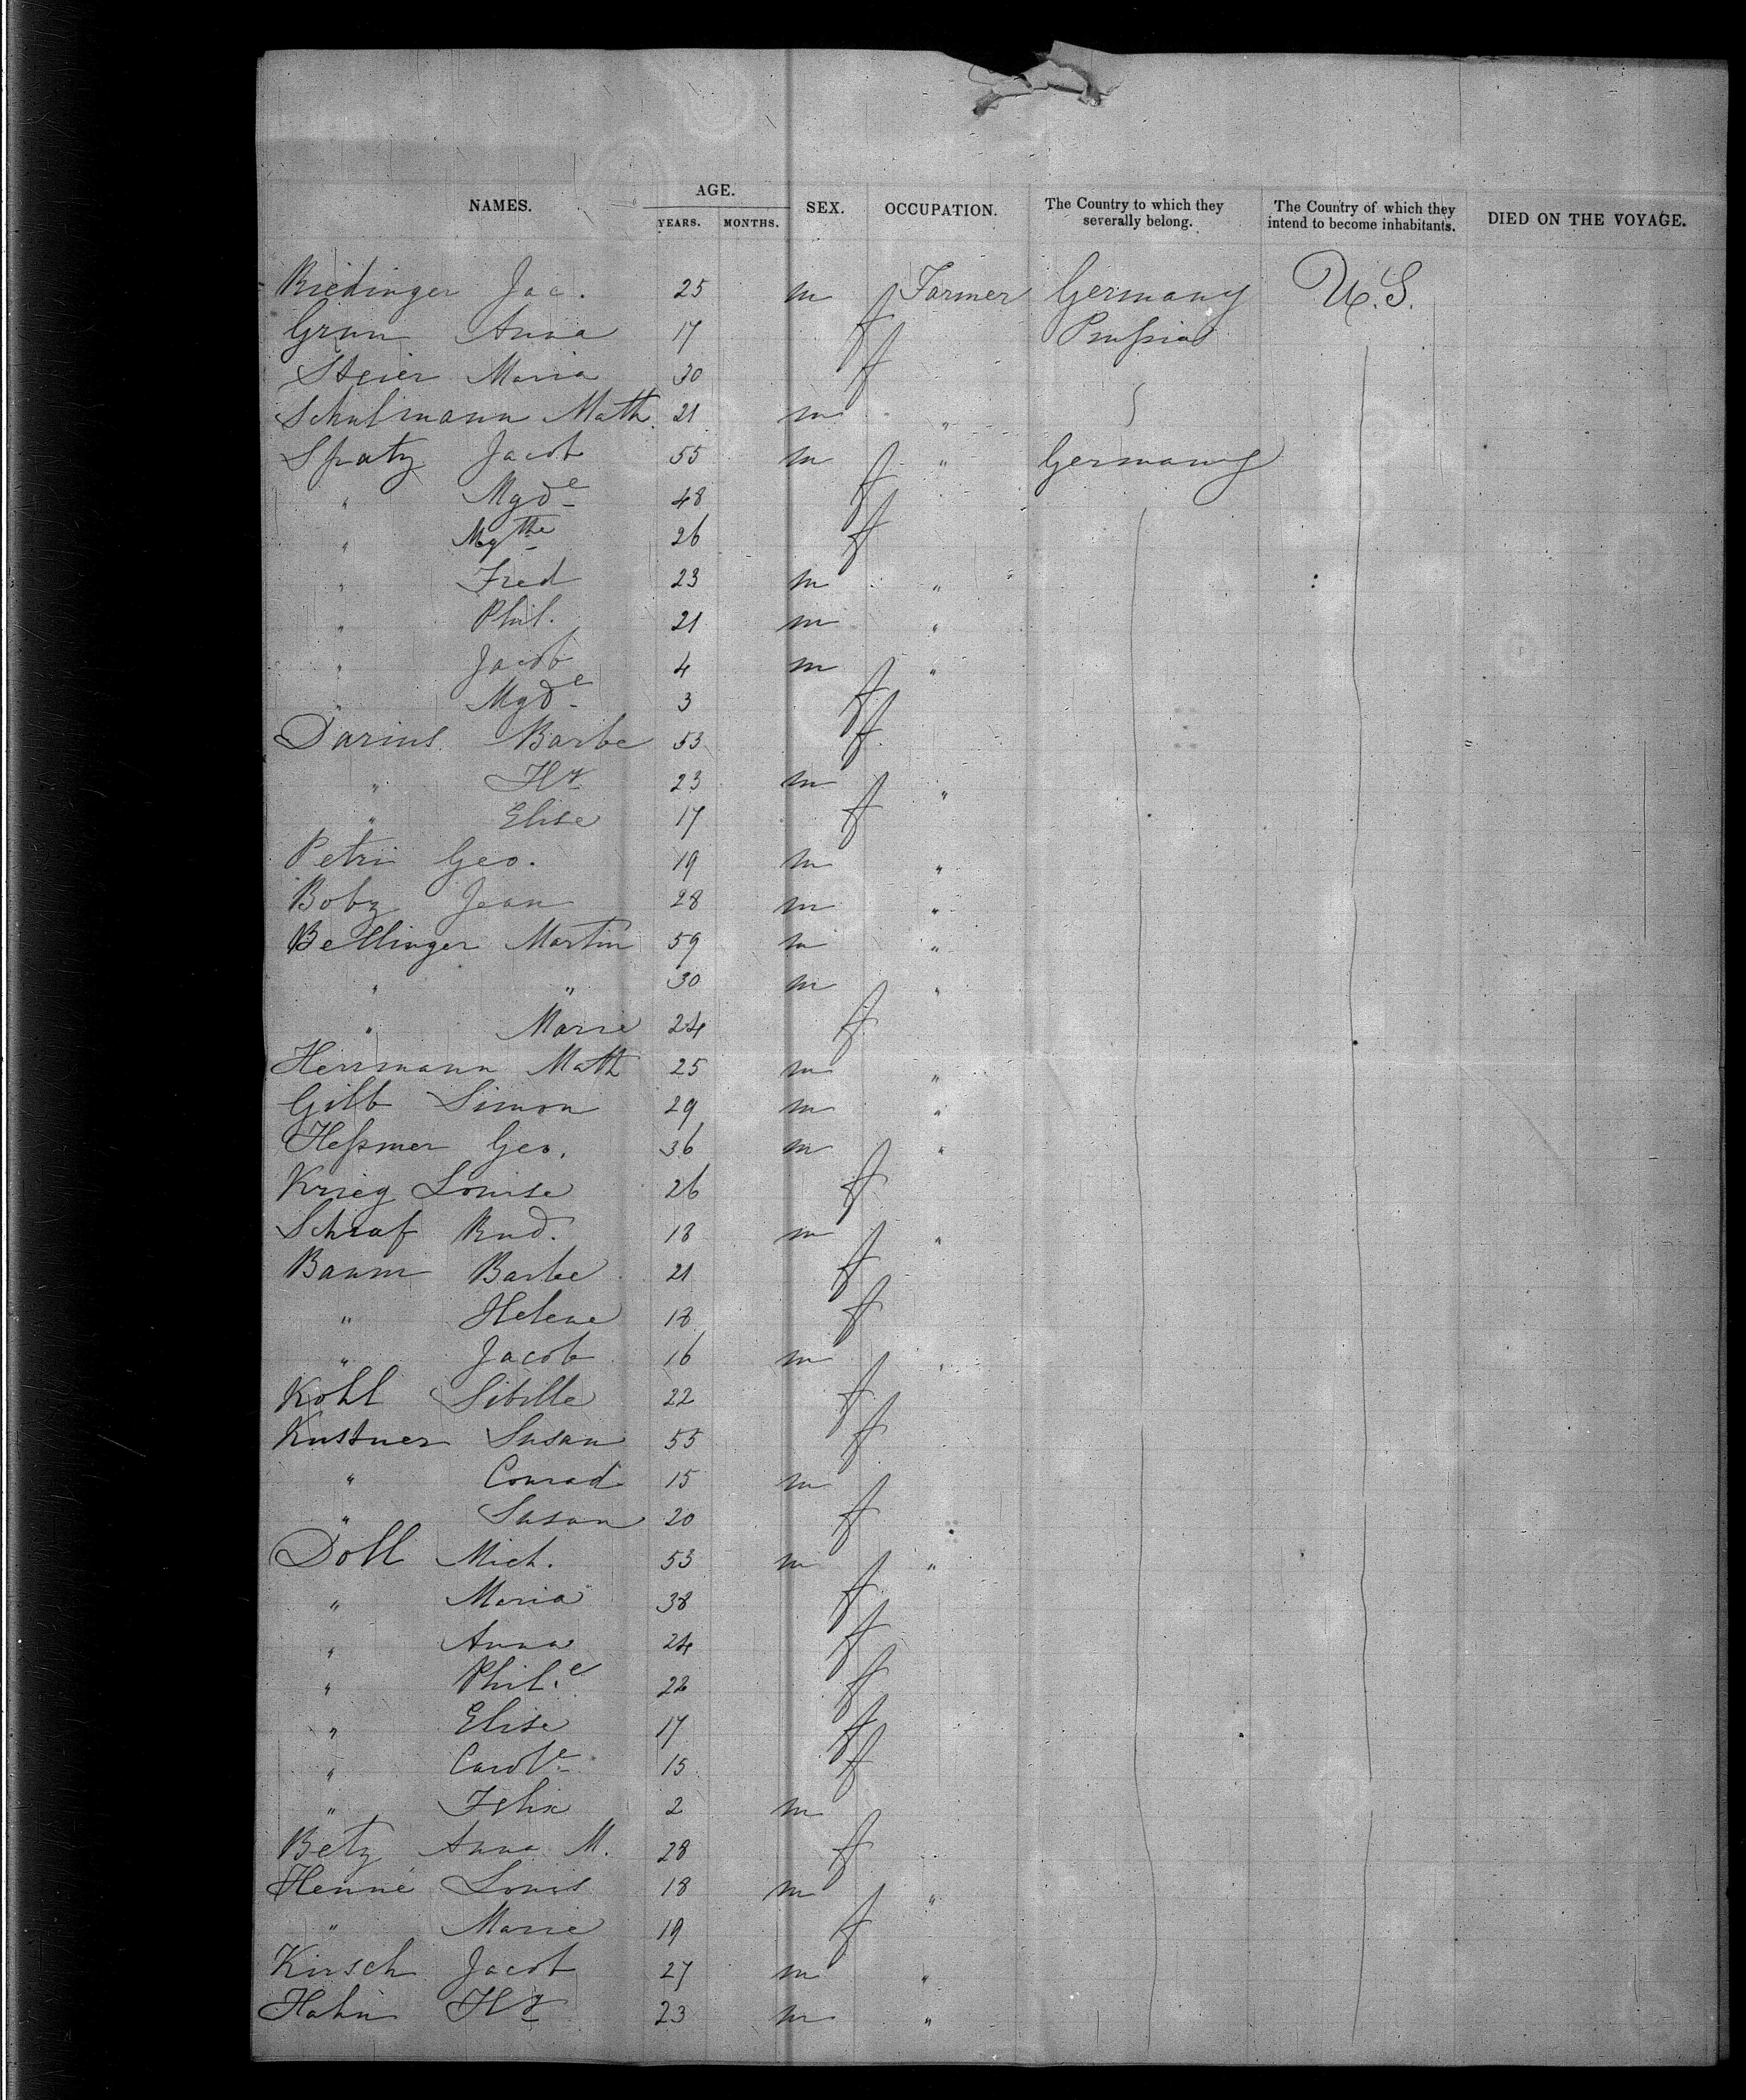 NAMES. AGE. SEX. OCCUPATION. The Country to which they severally belong. The Country of which they intend to become inhabitants. DIED ON THE VOYAGE.
YEARS. MONTHS.
Riedinger Jac. 25 m Farmer Germany U.S.
Grun Anna 17 f Prussia
Steier Maria 30 f
Schulmann Math. 21 m "
Spatz Jacob 55 m " Germany
" Mgde 48 f
" Mgthe 26 f
" Fred 23 m "
" Phil. 21 m "
" Jacob 4 m "
" Mgde 3 f
Darius Barbe 53 f
" Hy 23 m "
" Elise 17 f
Petri Geo. 19 m "
Boby Jean 28 m "
Bettinger Martin 59 m "
" " 30 m "
" Marie 24 f
Herrmann Math 25 m "
Gilb Simon 29 m "
Hessmer Geo. 36 m "
Krieg Louise 26 f
Schraf Rud. 18 m "
Baum Barbe 21 f
" Helene 18 f
" Jacob 16 m "
Kohl Sibille 22 f
Kustner Susan 55 f
" Conrad 15 m
" Susan 20 f
Doll Mich. 53 m "
" Maria 38 f
" Anna 24 f
" Phil.e 22 f
" Elise 17 f
" Carole 15 f
" Felix 2 m
Betz Anna M. 28 f
Henné Louis 18 m "
" Marie 19 f
Kirsch Jacob 27 m "
Hahn Hy 23 m "